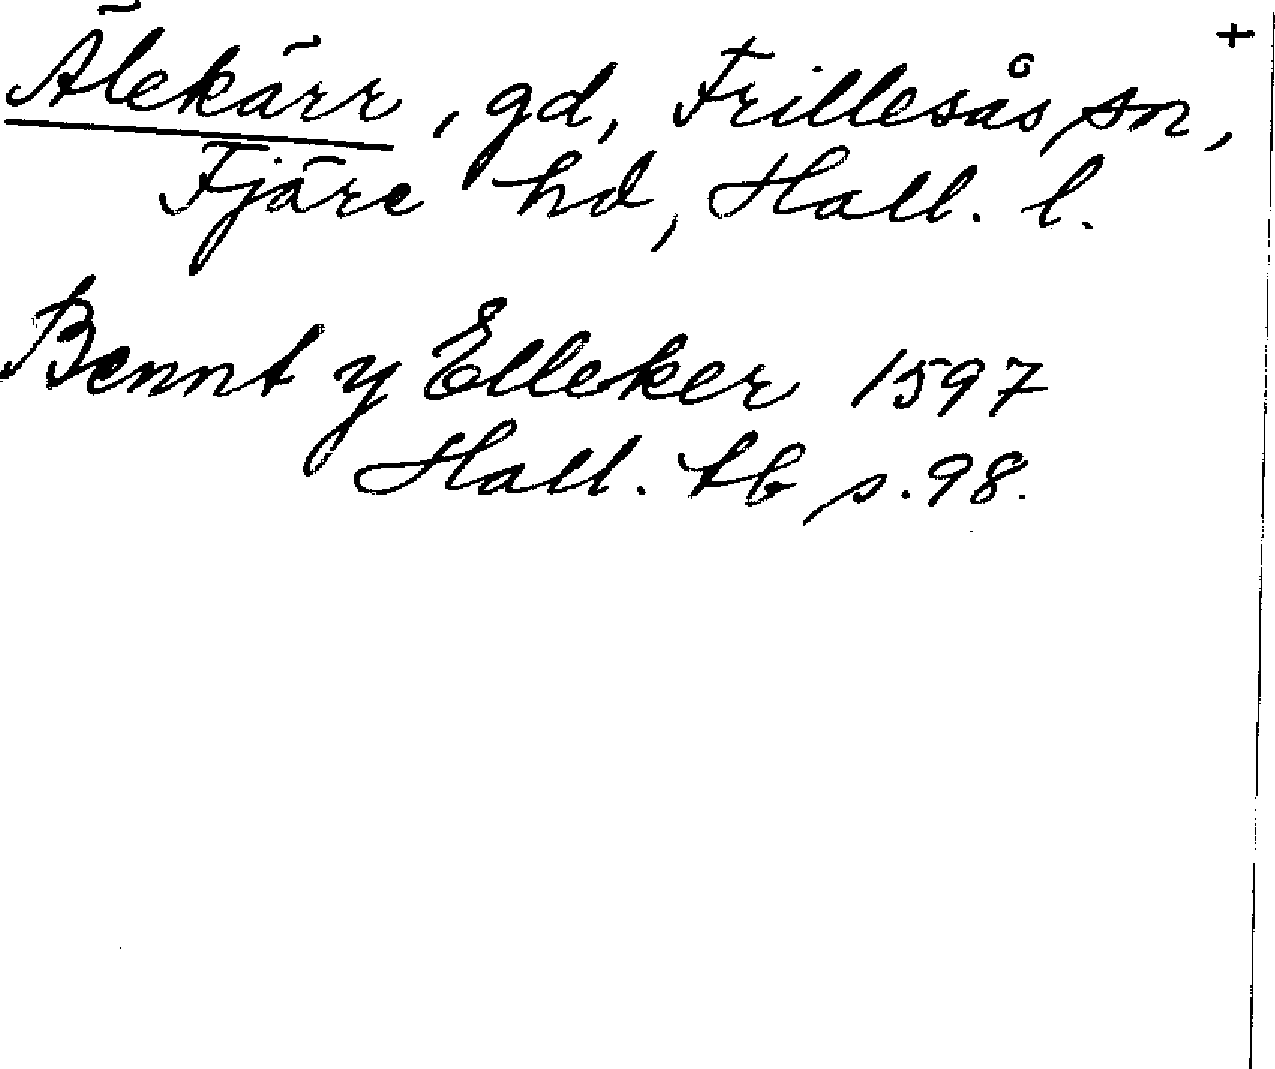 Älekärr, gd, Frillesås sn, +
Fjäre hd, Hall. l.
Bennt y Elleker 1597
Hall. tb s. 98.